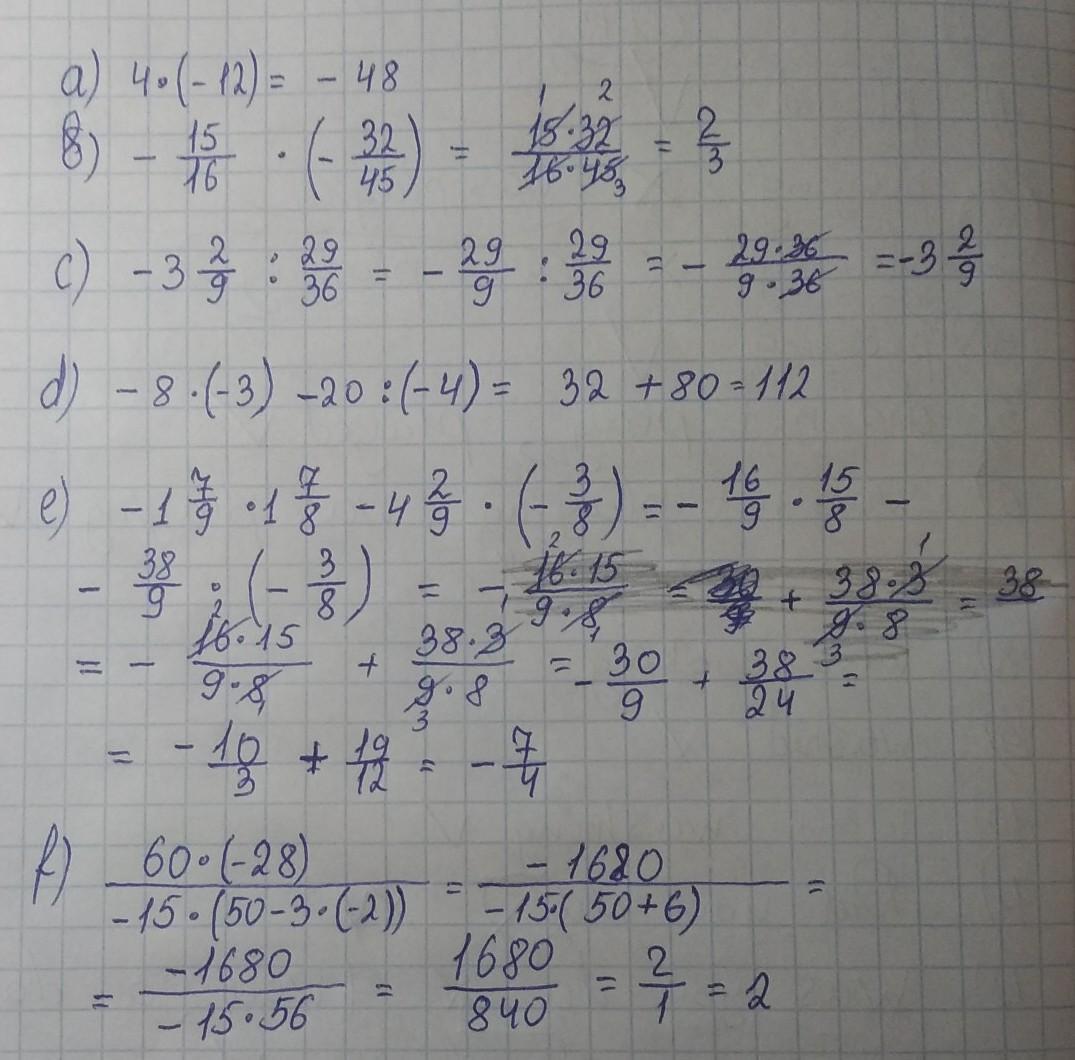 a) 4·(-12) = -48
b) - 15/16 · (- 32/45) = 15·32/16·45 = 2/3
c) -3 2/9 : 29/36 = - 29/9 : 29/36 = - 29·36/9·36 = -3 2/9
d) -8·(-3) -20:(-4) = 32 + 80 = 112
e) -1 7/9 ·1 7/8 -4 2/9 · (- 3/8) = - 16/9 · 15/8 -
- 38/9 : (- 3/8) = - 16·15/9·8 = + 38·3/9·8 = 38
= - 16·15/9·8 + 38·3/9·8 = - 30/9 + 38/24 =
= - 10/3 + 19/12 = - 7/4
f) 60·(-28)/-15·(50-3·(-2)) = -1680/-15·(50+6) =
= -1680/-15·56 = 1680/840 = 2/1 = 2